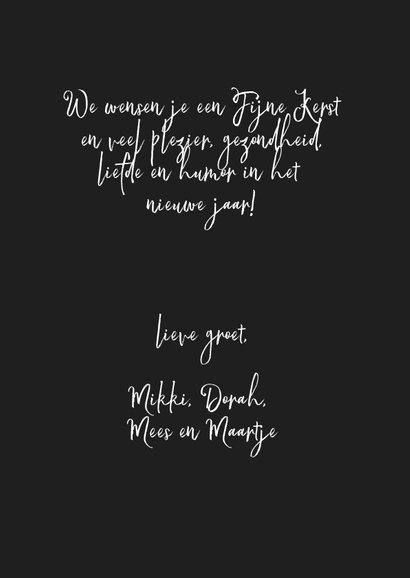 We wensen je een Fijne Kerst
en veel plezier, gezondheid,
liefde en humor in het
nieuwe jaar!
lieve groet,
Mikki, Dorah,
Mees en Maartje